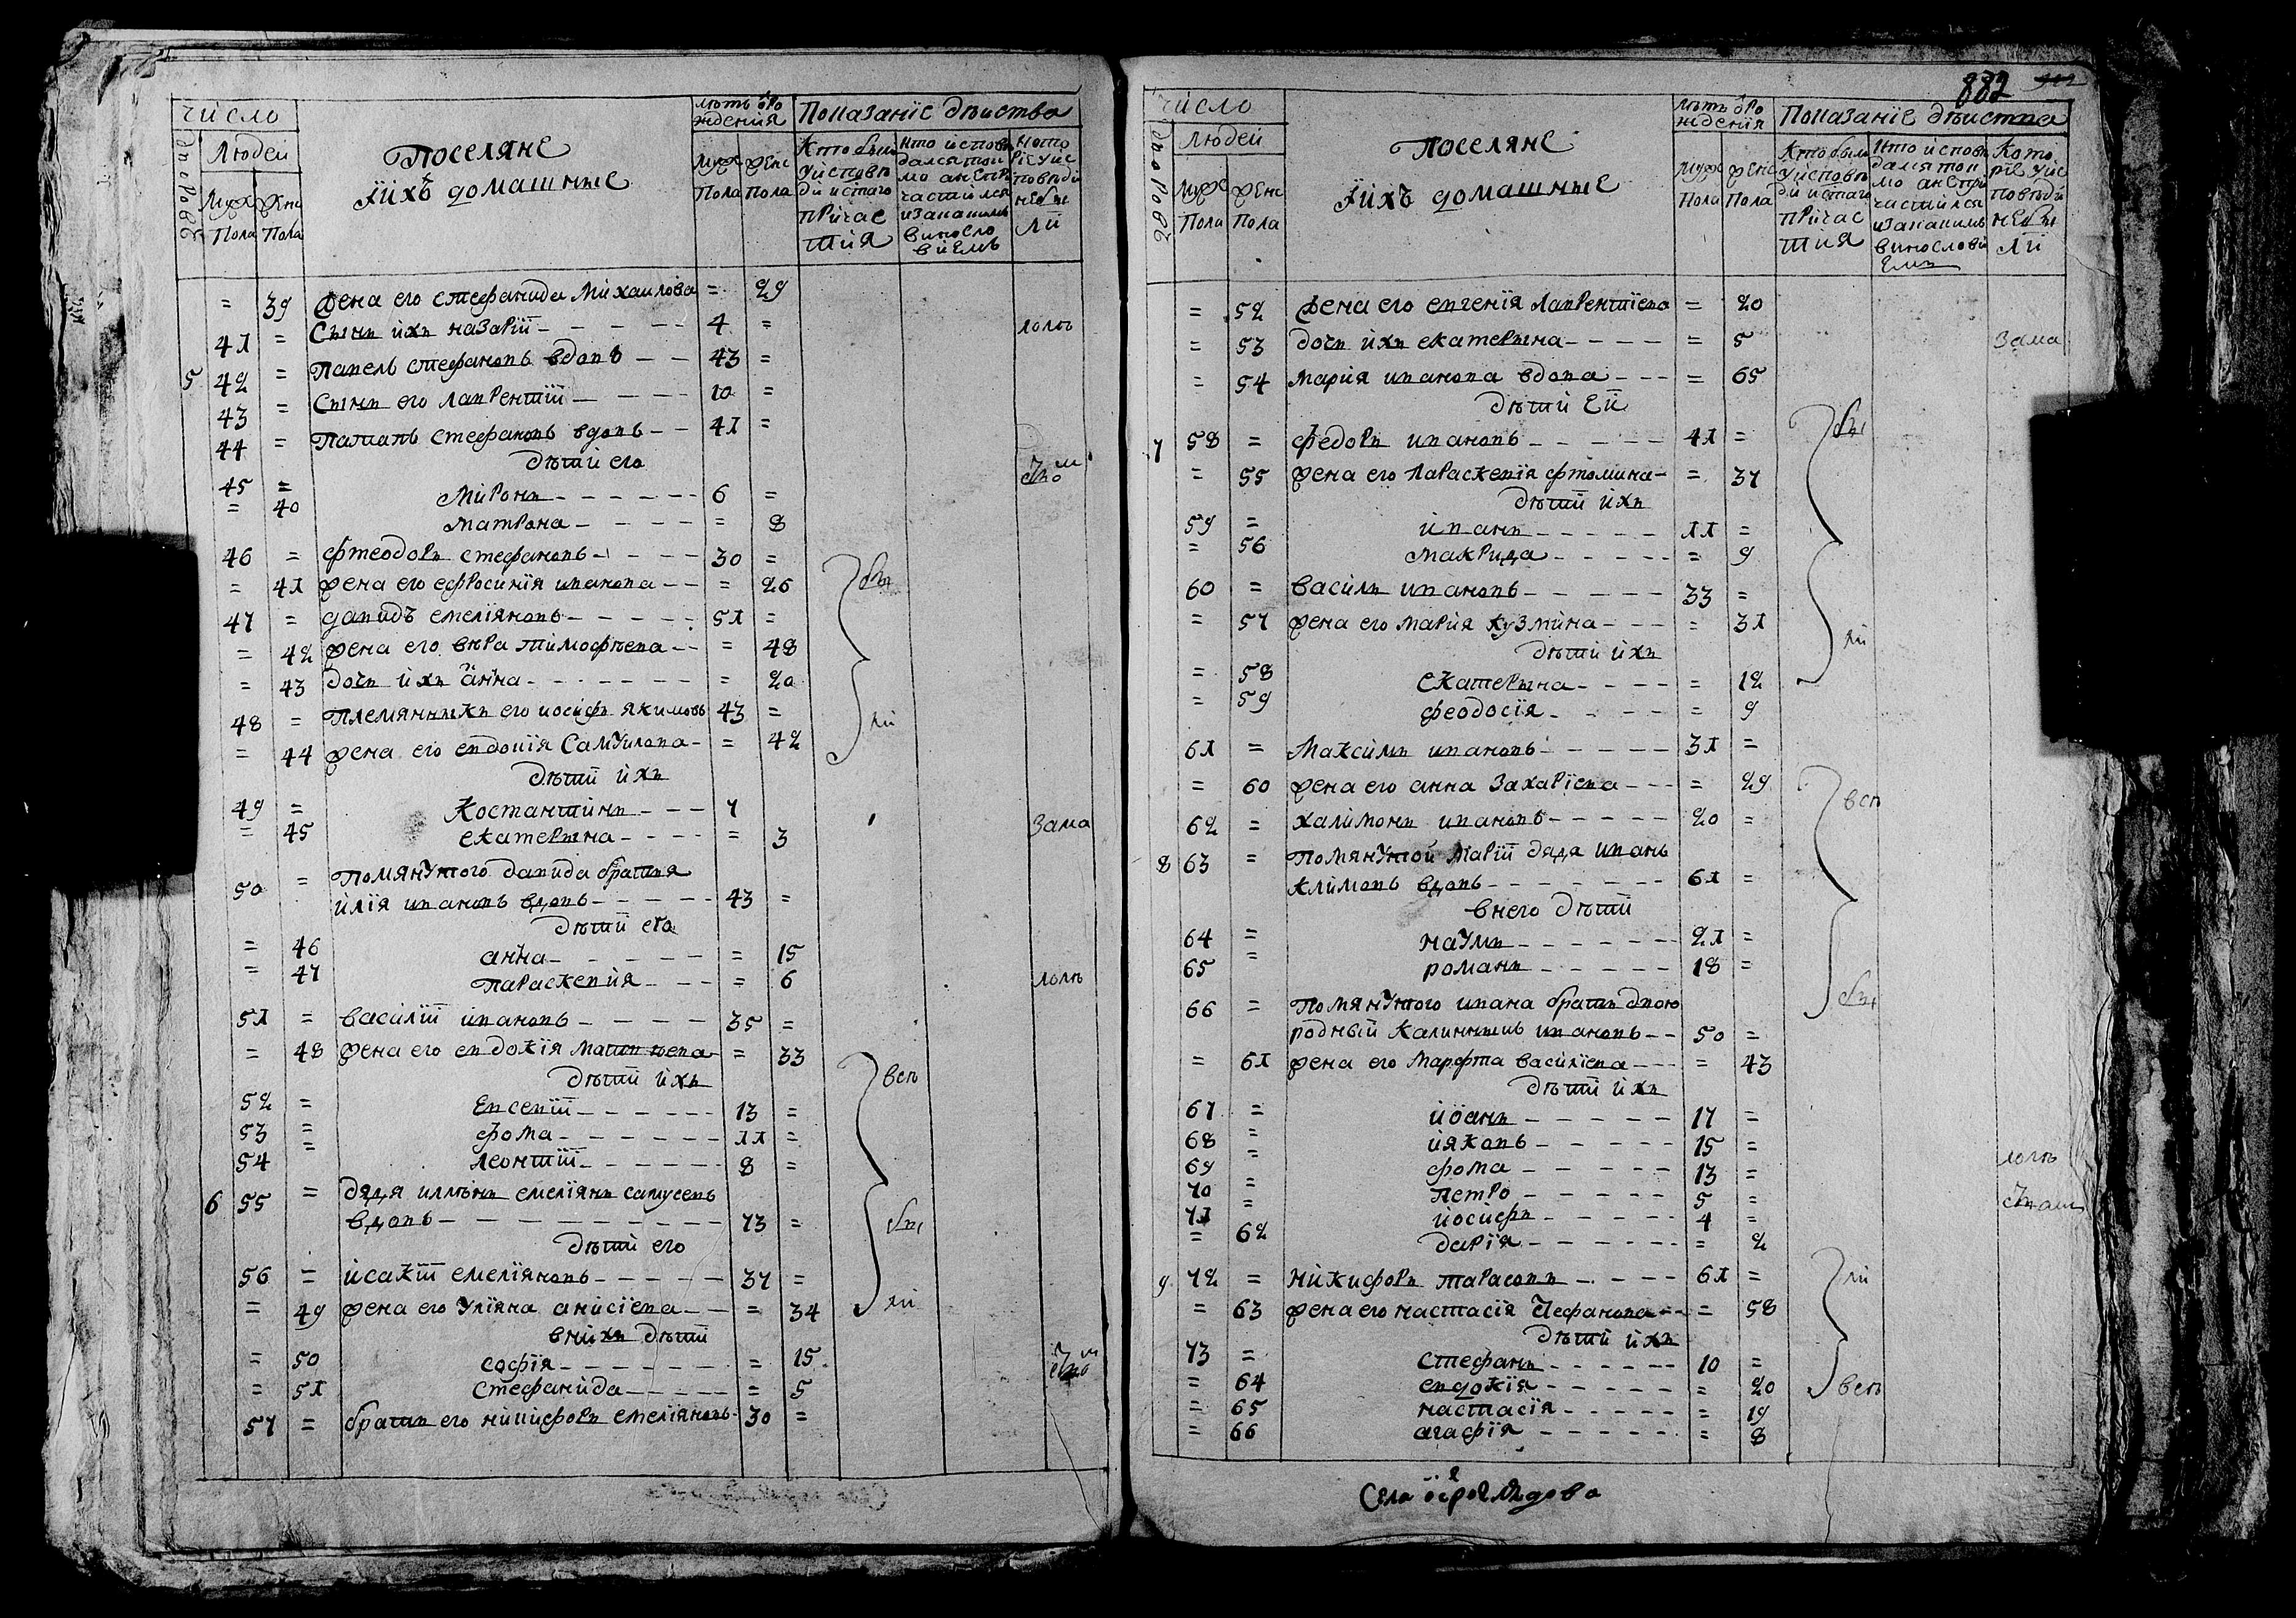 число
Людей
дворовъ
Муж Пола
Жен Пола
Поселяне
Їихъ домашные
лѣтъ ѿ рождения
Муж Пола
Женс Пола
Показаніе дѣиства
Кто былъ
Уисповѣ
ди истаго
причас
тия
Кто исповѣ
дался тол
ко анепри
частился
изакакимъ
винословіемъ
Кото
рїе Уис
повѣди
небы
ли
= 39 жена его стефанида Михаилова = 29
41 = Сынъ ихъ назарїй 4 = лолѣ
5 42 = Павелъ стефановъ вдовъ 43 =
43 = Сынъ его лаврентїй 10 =
44 = Паталъ стефановъ вдовъ 41 =
дѣти его
45 = Миронъ 6 =
= 40 матрона = 8
46 = фтеодоръ стефановъ 30 =
= 41 жена его ефросинїя иванова = 26
47 = давидъ емелїяновъ 51 =
= 42 жена его вѣра тимофѣева = 48
= 43 дочъ ихъ анна = 20
48 = Племянныкъ его иосифъ якимовъ 43 =
= 44 жена его евдокїя Самуилова = 42
дѣти ихъ
49 = Костантинъ 7
= 45 екатерына = 3 Зама
50 = Помянутого давида братия
илїя ивановъ вдовъ 43 =
дѣти его
= 46 анна = 15
= 47 параскевия = 6 лолѣ
51 = василїй ивановъ 35 =
= 48 жена его евдокїя матвѣева = 33
дѣти ихъ
52 = Евсевїй 13 =
53 = фома 11 =
54 = леонтїй 8 =
6 55 = дядя иллѣнъ емелїянъ самусевъ
вдовъ 73 =
дѣти его
56 = исакїй емелїяновъ 37 =
= 49 жена его Улїяна анисїева = 34
вних дѣти
= 50 софїя = 15
= 51 стефанида = 5
57 = братъ его никифоръ емелїяновъ 30 =
бы
ли
всѣ
бы
ли
882
число
Людей
дворовъ
Муж Пола
Женс Пола
Поселяне
Їихъ домашные
лѣтъ ѿ рождения
Муж Пола
Женс Пола
Показаніе дѣиства
Кто былъ
Уисповѣ
ди истаго
причас
тия
Кто исповѣ
дался тол
ко анепри
частился
изакакимъ
винослови
емъ
Кото
рїе Уис
повѣди
небы
ли
= 52 жена его евгенїя лаврентїева = 20
= 53 дочъ ихъ екатерына = 5 Зама
= 54 мария иванова вдова = 65
дѣти Ей
7 58 = федоръ ивановъ 41 =
= 55 жена его параскевїя фтомина = 37
дѣти ихъ
59 = иванъ 11 =
= 56 макрида = 9
60 = василъ ивановъ 33 =
= 57 жена его мария кузмина = 31
дѣти ихъ
= 58 екатерына = 12
= 59 феодосїя = 9
61 = максимъ ивановъ 31 =
= 60 жена его анна Захарїева = 29
62 = халимонъ ивановъ 20 =
8 63 = помянутой марїй дядя иванъ
климовъ вдовъ 61 =
внего дѣти
64 = наумъ 21 =
65 = романъ 18 =
66 = помянутого ивана братъ двою
родный калинныкъ ивановъ 50 =
= 61 жена его марфта василїева = 43
дѣти ихъ
67 = иоанъ 17 =
68 = ияковъ 15 =
69 = фома 13 = лолѣ
70 = петро 5 =
71 = иосифъ 4 =
= 62 дарїя = 2
9 72 = никифоръ тарасовъ 61 =
= 63 жена его настасїя = 58
дѣти ихъ
73 = стефанъ 10 =
= 64 евдокїя = 20
= 65 настасїя = 19
= 66 агафїя = 8
бы
ли
всѣ
бы
ли
всѣ
Села